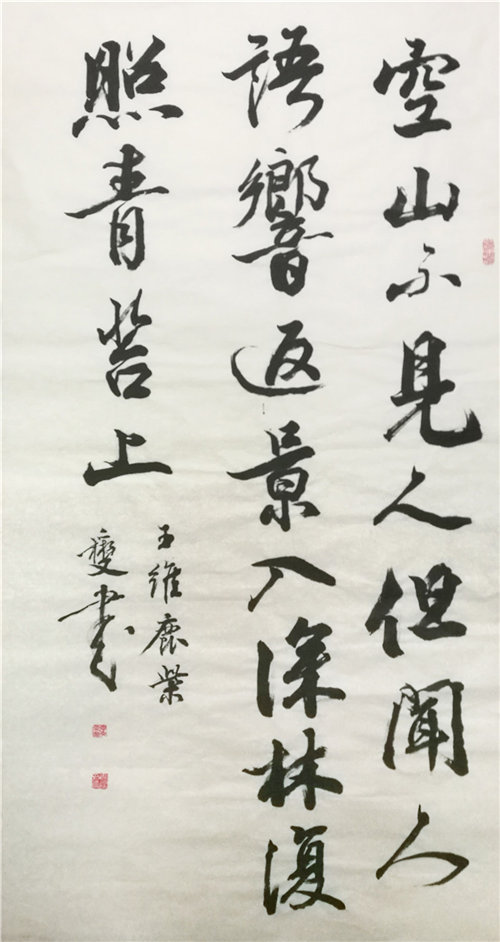 空山不見人但聞人
語響返景入深林復
照青苔上
王維鹿柴
書